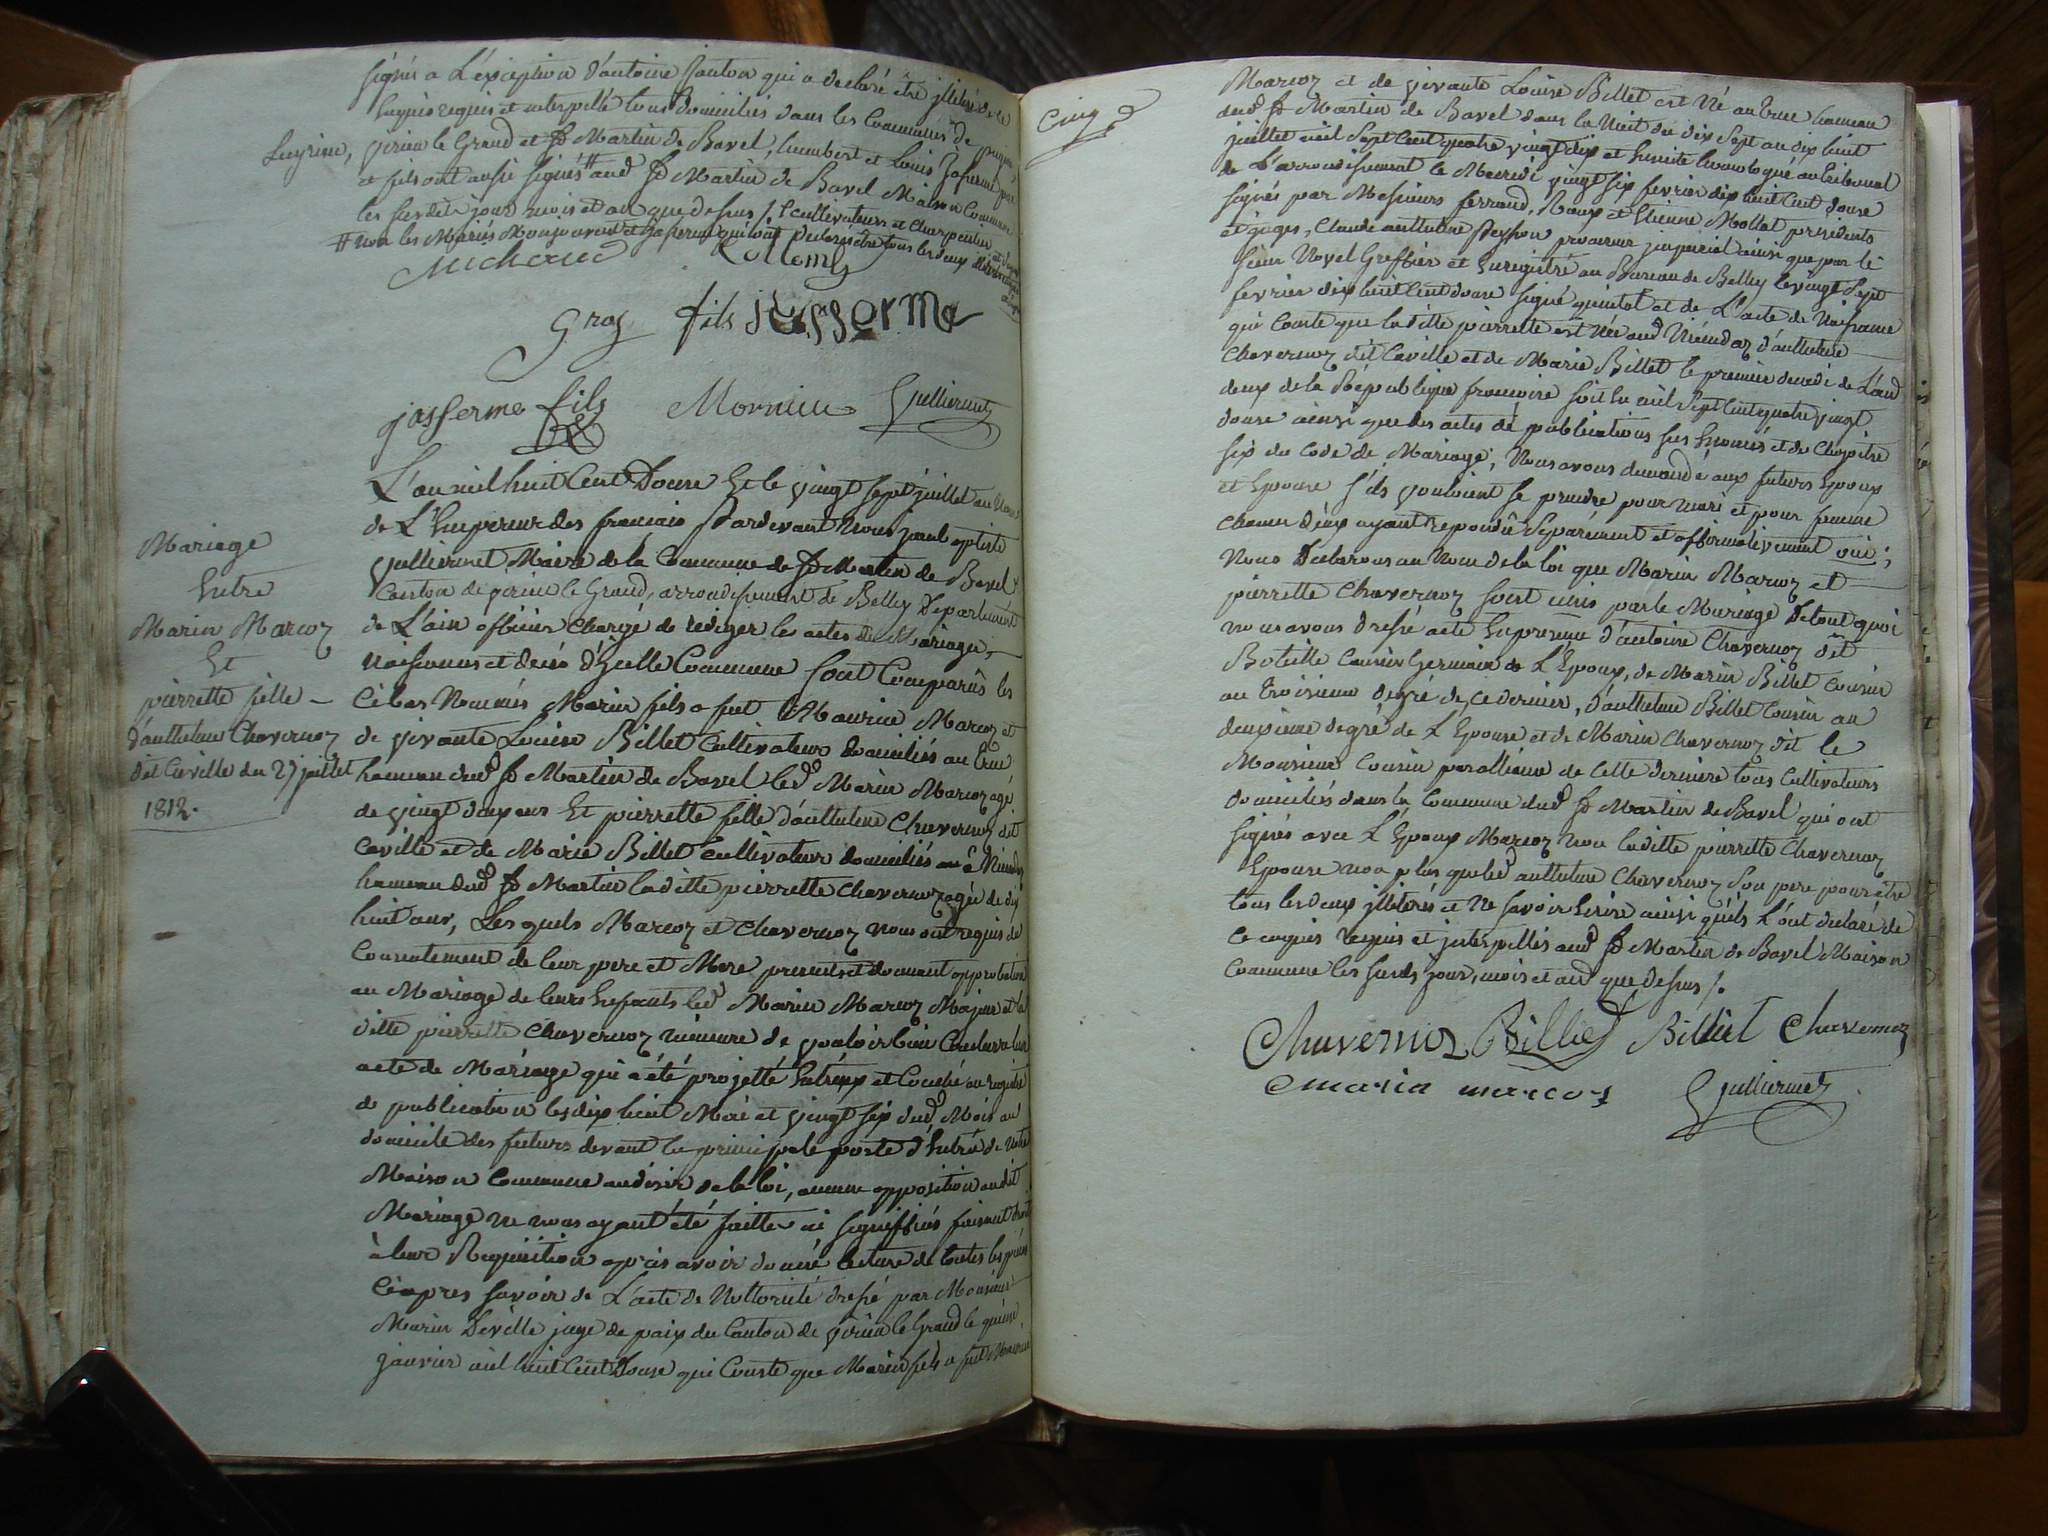 signés a L'exception d'antoine Janton qui a declaré être jlliteré de ce
enquis requis et interpellé tous domiciliés dans les Communes de
Seyrieu, virieu le Grand et St Martin de Bavel, humbert et Louis Jasserme pere
et fils ont aussi signés # aud St Martin de Bavel Maison Commune
les susdits jour mois et an que dessus /. cultivateurs et Charpentier
# non les Mariés et Jasserme qui ont declaré être tous les deux
Michaud Collomb
Gros fils jasserme
jasserme fils Mornieu Gulliermet
Mariage
Entre
Marin Marcoz
Et
pierrette fille
d'anthelme Chavernoz
dit Caville du 27 juillet
1812.
L'an mil huit Cent Douse Et le vingt sept juillet au Nom
de L'Empereur des francais Pardevant Nous jean baptiste
Gulliermet Maire de la Commune de St Martin de Bavel
Canton de virieu le Grand, arrondissement de Belley Departement
de L'ain officier chargé de rediger les actes de Mariage,
Naissances et decés d'Icelle Commune sont Comparus les
Cibas Nommés Marin fils a fut Maurice Marcoz et
de vivante Louise Billet Cultivateurs domiciliés au Truc
hameau dud St Martin de Bavel led Marin Marcoz agé
de vingt deux ans Et pierrette fille d'anthelme Chavernoz dit
Caville et de Marie Billet cultivateurs domiciliés au
hameau dud St Martin ladite pierrette Chavernoz agée de dix
huit ans, Lesquels Marcoz et Chavernoz nous ont requis du
Consentement de leur pere et Mere presents et donnant approbation
au Mariage de leurs Enfants led Marin Marcoz Majeur et la
ditte pierrette Chavernoz mineure de vouloir bien Conclure leur
acte de Mariage qui a été projetté Entreux et Couché au registre
de publication les dix huit Mai et vingt six dud Mois au
domicile des futurs devant la principale porte d'Entrée de Notre
Maison Commune au desir de la loi, aucune opposition audit
Mariage ne nous ayant été faitte ni signiffiée faisant droit
à leur Requisition apres avoir donné lecture de toutes les pieces
Ciapres savoir de L'acte de Nottorieté dressé par Monsieur
Marin Deville juge de paix du Canton de virieu le Grand le quinse
janvier mil huit Cent Douse qui Conste que Marin fils a fut Maurice
Cinq
Marcoz et de vivante Louise Billet est Né au Truc hameau
dud St Martin de Bavel dans la Nuit du dix Sept au dix huit
juillet mil Sept Cent quatre vingt dix et homologué au Tribunal
de L'arrondissement le Mecredi vingt six fevrier dix huit Cent douse
signés par Messieurs ferrand, Roux et Etienne Mollet presidents
et juges, Claude anthelme Peysson procureur jmperial ainsi que par le
sieur Novel Greffier et Enregistré au Bureau de Belley le vingt Sept
fevrier dix huit Cent douse signé quintal et de L'acte de Naissance
qui Conste que laditte pierrette est Née aud d'anthelme
Chavernoz dit Caville et de Marie Billet le premier decadi de L'an
deux de la République francoise soit En mil Sept Cent quatre vingt
douse ainsi que des actes de publications sus Enoncés et du Chapitre
six du Code de Mariage, Nous avons demandé aux futurs Epoux
et Epouse s'ils vouloient se prendre pour mari et pour femme
Chacun d'eux ayant repondu Separement et affirmativement oui;
Nous Declarons au Nom de la loi que Marin Marcoz et
pierrette Chavernoz sont unis par le Mariage De tout quoi
nous avons dressé acte En presence d'antoine Chavernoz dit
Botille Cousin Germain de L'Epoux, de Marin Billet Cousin
au troisieme degré de ce dernier, d'anthelme Billet Cousin au
deuxieme degré de L'Epouse et de Marin Chavernoz dit le
Monsieur Cousin par alliance de Cette derniere tous Cultivateurs
domiciliés dans la Commune dud St Martin de Bavel qui ont
signés avec L'Epoux Marcoz non laditte pierrette Chavernoz
Epouse non plus que led anthelme Chavernoz Son pere pour être
tous les deux jlliterés et ne savoir Ecrire ainsi qu'ils L'ont declaré de
ce enquis requis et interpellés aud St Martin de Bavel Maison
Commune les susds jour, mois et an que dessus /.
Chavernoz Billiet Billiet Chavernoz
marin marcoz Gulliermet